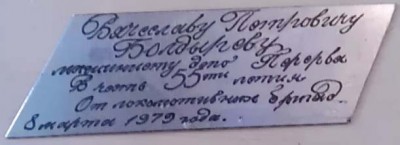 Вячеславу Петровичу
Болдыреву
машинисту депо Перерва
В честь 55ти летия
От локомотивных бригад.
8 марта 1979 года.